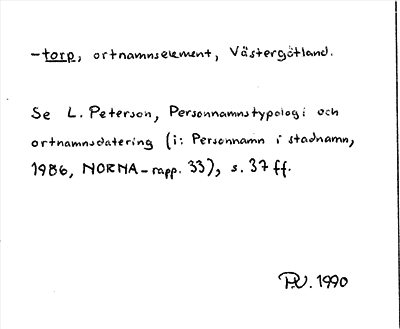 -torp, ortnamnselement, Västergötland.
Se L. Peterson, Personnamnstypologi och
ortnamnsdatering (i: Personnamn i stadnamn,
1986, NORNA-rapp. 33), s. 37 ff.
P.V. 1990